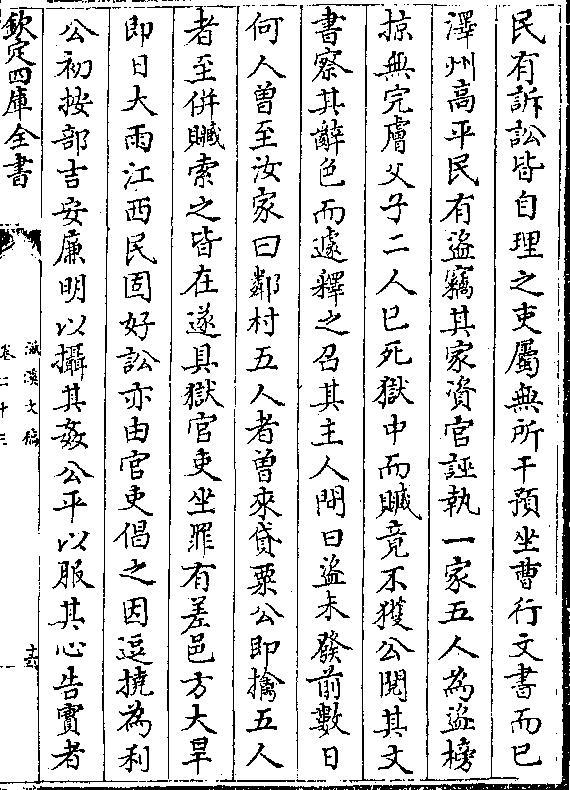 民有訴訟皆自理之吏屬無所干預坐曹行文書而已
澤州高平民有盜竊其家資官誣執一家五人為盜榜
掠無完膚父子二人已死獄中而贓竟不獲公閱其文
書察其辭色而遽釋之召其主人問曰盜未發前數日
何人曽至汝家曰鄰村五人者曽來貸粟公即擒五人
者至併贓索之皆在遂具獄官吏坐罪有差邑方大旱
即日大雨江西民固好訟亦由官吏倡之因逗撓為利
公初按部吉安廉明以攝其姦公平以服其心告實者
欽定四庫全書
滋溪文稿
卷二十三